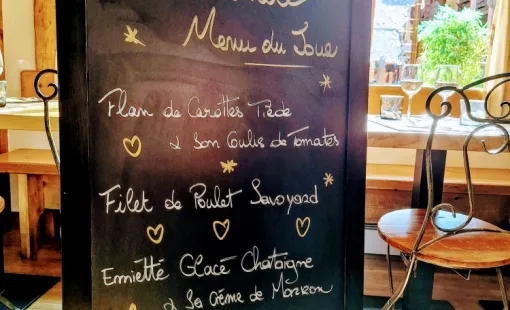 Menu du Jour
Flan de Carottes Tiède
& Son Coulis de Tomates
Filet de Poulet Savoyard
Emietté Glacé Chataigne
& Sa Crème de Marron